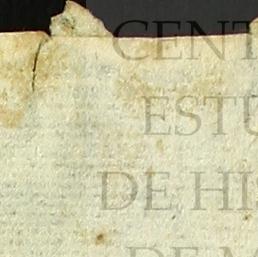 CENT
ESTU
DE HIS
DE M